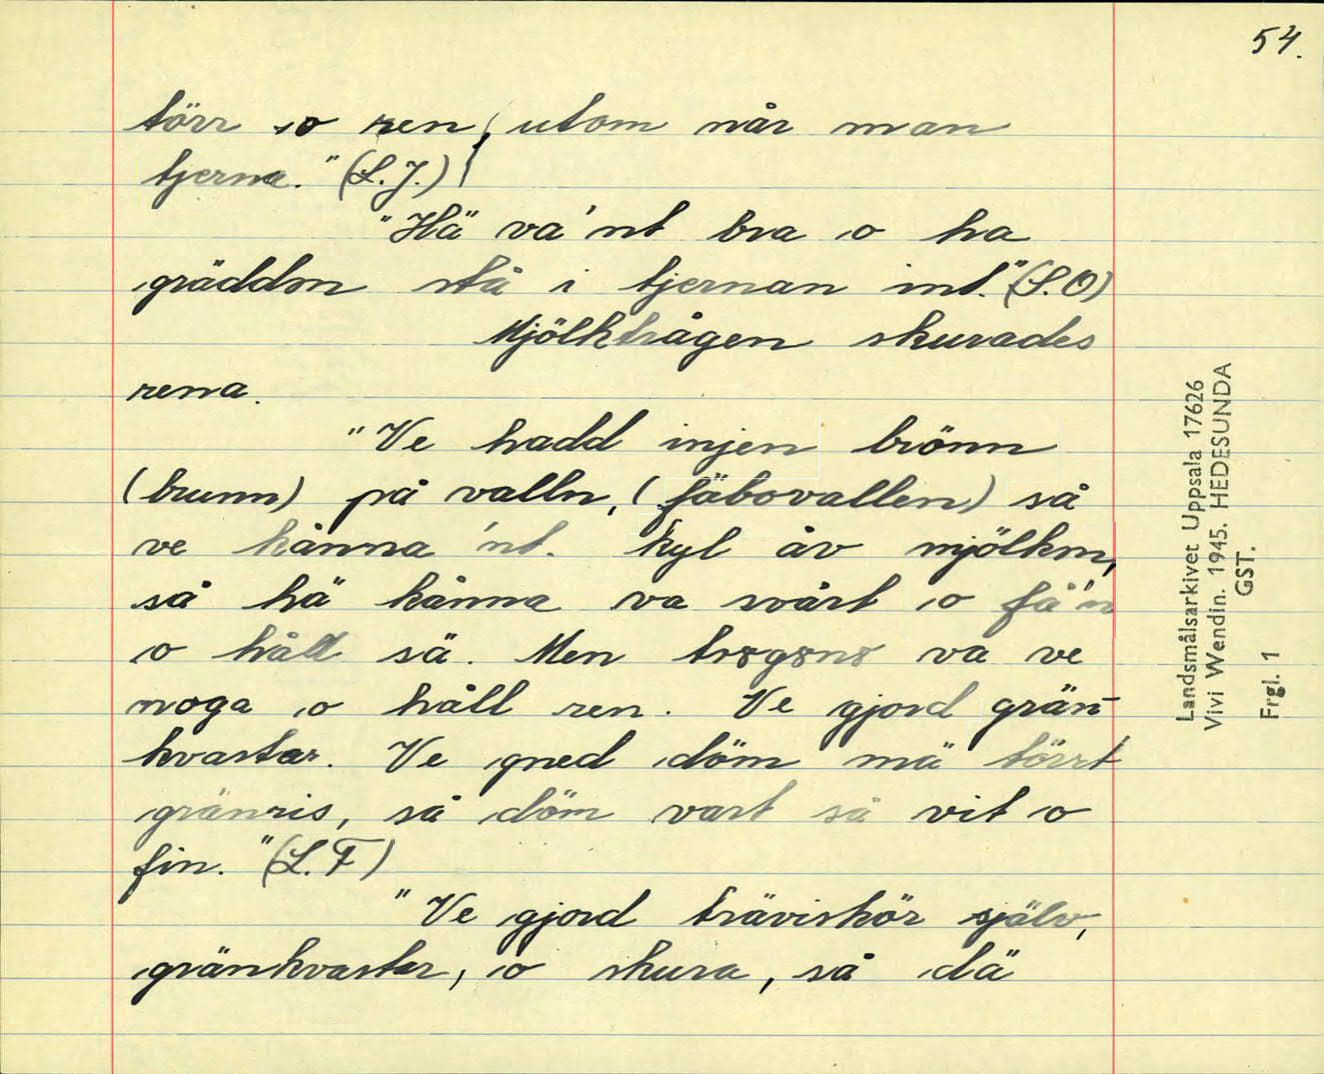 54.
törr o ren, utom når man
tjerna." (L.J.)
"Hä va'nt bra o ha
gräddon stå i tjernan int." (S.O)
Mjölktrågen skurades
rena.
"Ve hadd injen brönn
(brunn) på valln, (fäbovallen) så
ve kånna 'nt. kyl åv mjölkm,
så hä kånna va svårt o få'n
o håll sä. Men va ve
noga o håll ren. Ve gjord grän-
kvastar. Ve gned döm mä törrt
gränris, så döm vart så vit o
fin." (L.F)
"Ve gjord träviskör själv,
gränkvastar, o skura, så dä
Landsmålsarkivet Uppsala 17626
Vivi Wendin. 1945. HEDESUNDA
GST.
Frgl. 1